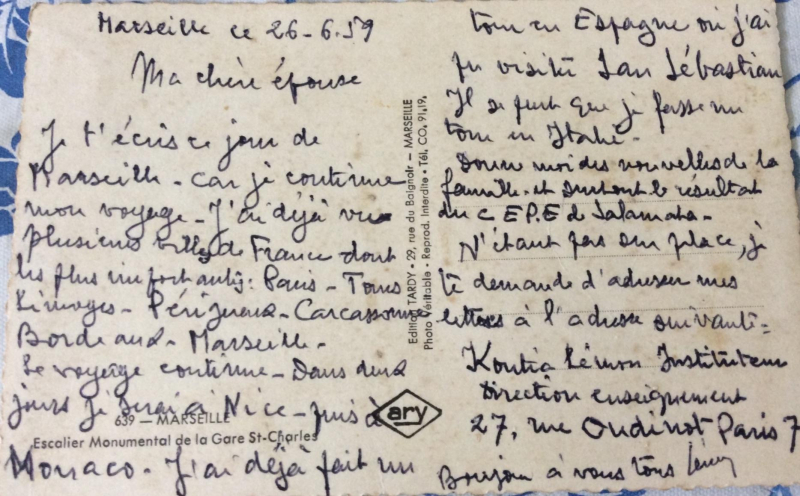 Marseille ce 26-6-59
Ma chère épouse
Je t'écris ce jour de
Marseille - car je continue
mon voyage - J'ai déjà vu
plusieurs villes de France dont
les plus importantes: Paris - Tours
Limoges - Périgueux - Carcassonne
Bordeaux - Marseille -
Le voyage continue - Dans deux
jours je serai à Nice - puis à
Monaco - J'ai déjà fait un
639 — MARSEILLE
Escalier Monumental de la Gare St-Charles
Edition TARDY • 29, rue du Baignoir — MARSEILLE
Photo Véritable • Reprod. Interdite • Tél. CO. 91.19.
ary
tour en Espagne où j'ai
pu visiter San Sébastian
Il se peut que je fasse un
tour en Italie -
Donne moi des nouvelles de la
famille - et surtout le résultat
du C E P.E de
N'étant pas sur place, je
te demande d'adresser mes
lettres à l'adresse suivante -
Instituteur
Direction enseignement
27, rue Oudinot Paris 7
Bonjour à vous tous